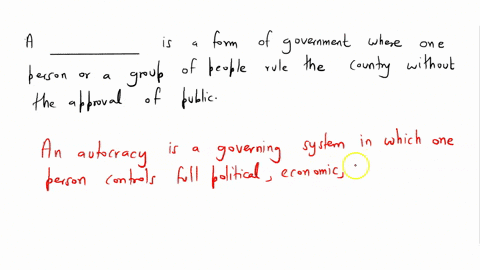 A __________ is a form of government where one
person or a group of people rule the country without
the approval of public.
An autocracy is a governing system in which one
person controls full political, economic,